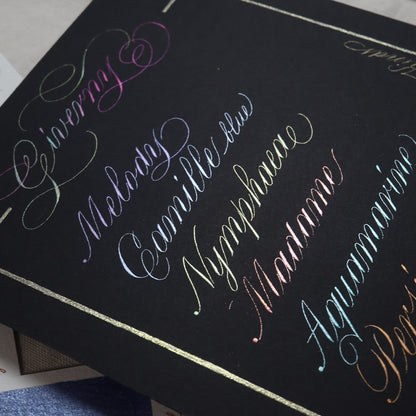 Giverny
Melody
Camille blue
Nymphaea
Madame
Aquamarine